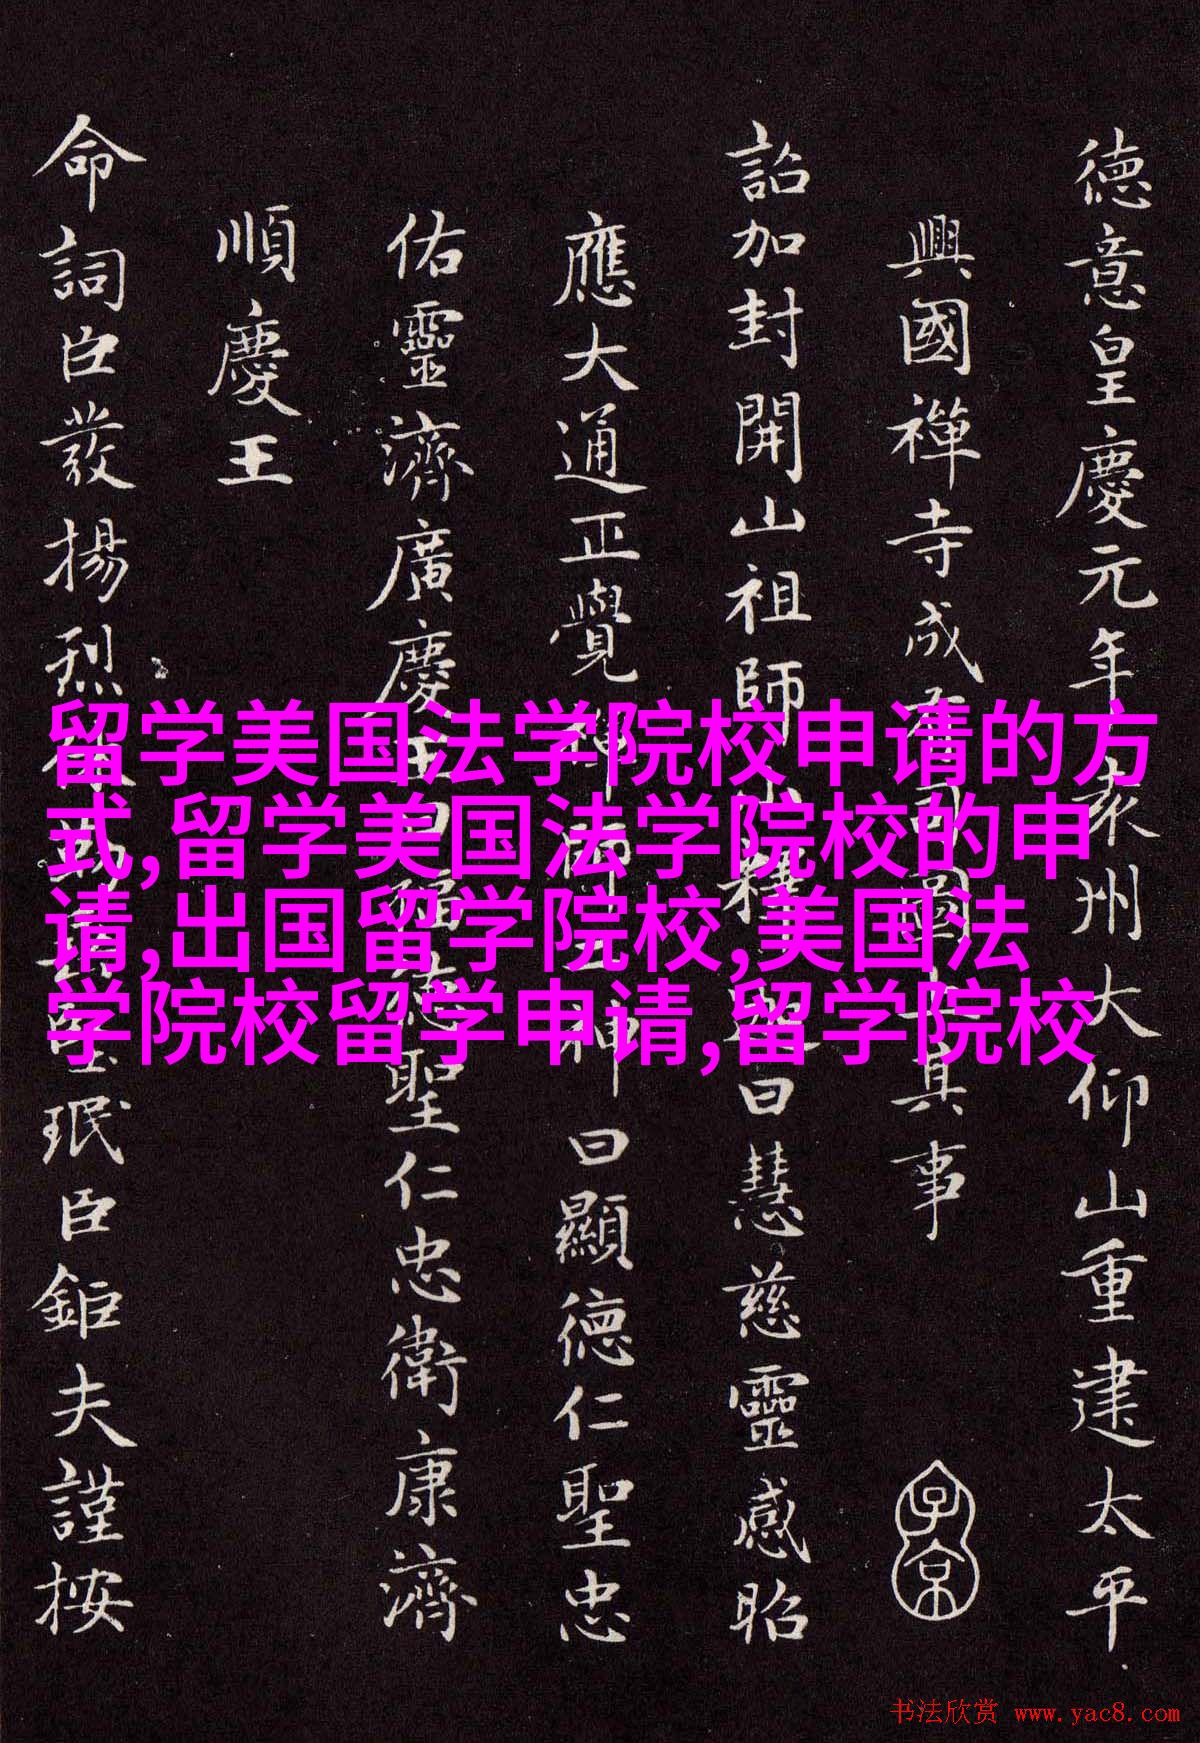 德意皇慶元年袁州大仰山重建太平
興國禪寺成有司圖上其事
詔加封開山祖師小釋曰慧慈靈感昭
應大通正覺禪師二神曰顯德仁聖忠
佑靈濟廣慶王曰福德聖仁忠衛康濟
順慶王
命詞臣發揚烈珉臣鉅夫謹按
子京
留学美国法学院校申请的方
式,留学美国法学院校的申
请,出国留学院校,美国法
学院校留学申请,留学院校
书法欣赏 www.yac8.com